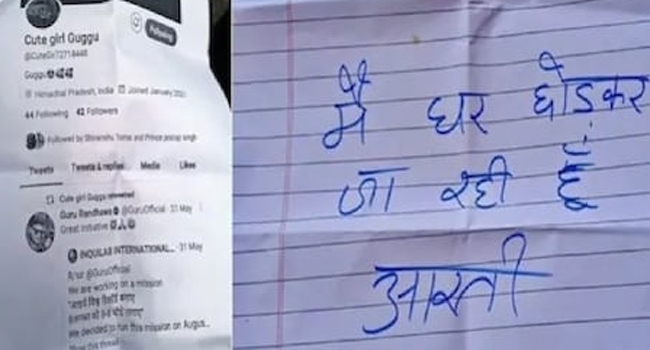 Cute girl Guggu
Following
Guggu
Himachal Pradesh, India Joined January
44 Following 42 Followers
Followed by Shivanshu Tomar and Prince pratap singh
Tweets Tweets & replies Media Likes
Cute girl Guggu retweeted
Guru Randhawa @GuruOfficial · 31 May
Great initiative
INQUILAB INTERNATIONAL... · 31 May
@GuruOfficial
We are working on a mission
We decided to run this mission on Augus...
Show this thread
मैं घर छोडकर
जा रही हूँ
आरती